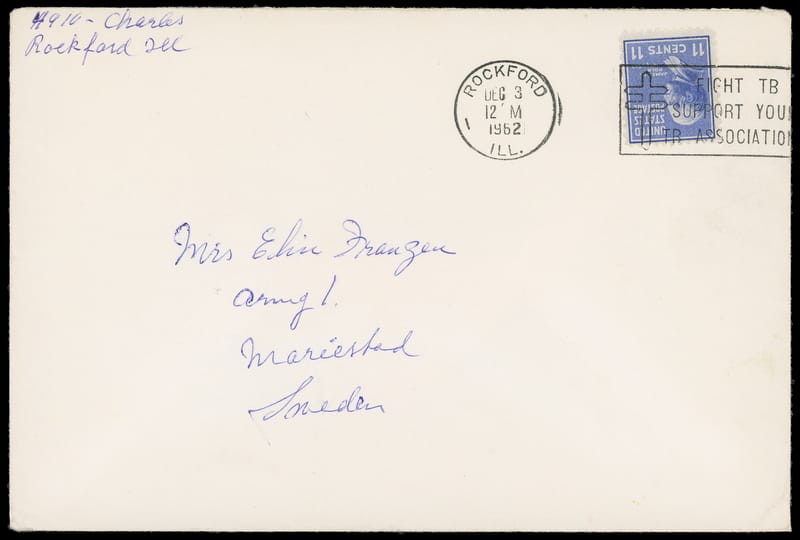 4910 - Charles
Rockford Ill
ROCKFORD
DEC 3
12 M
1962
ILL.
11 CENTS 11
JAMES POLK
UNITED
STATES
POSTAGE
FIGHT TB
SUPPORT YOU
TB ASSOCIATION
Mrs Elin Franzen
Arnug 1.
Mariestad
Sweden